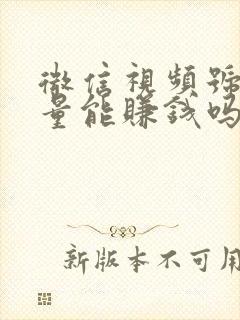 微信視頻號
量能賺錢吗
新版本不可用